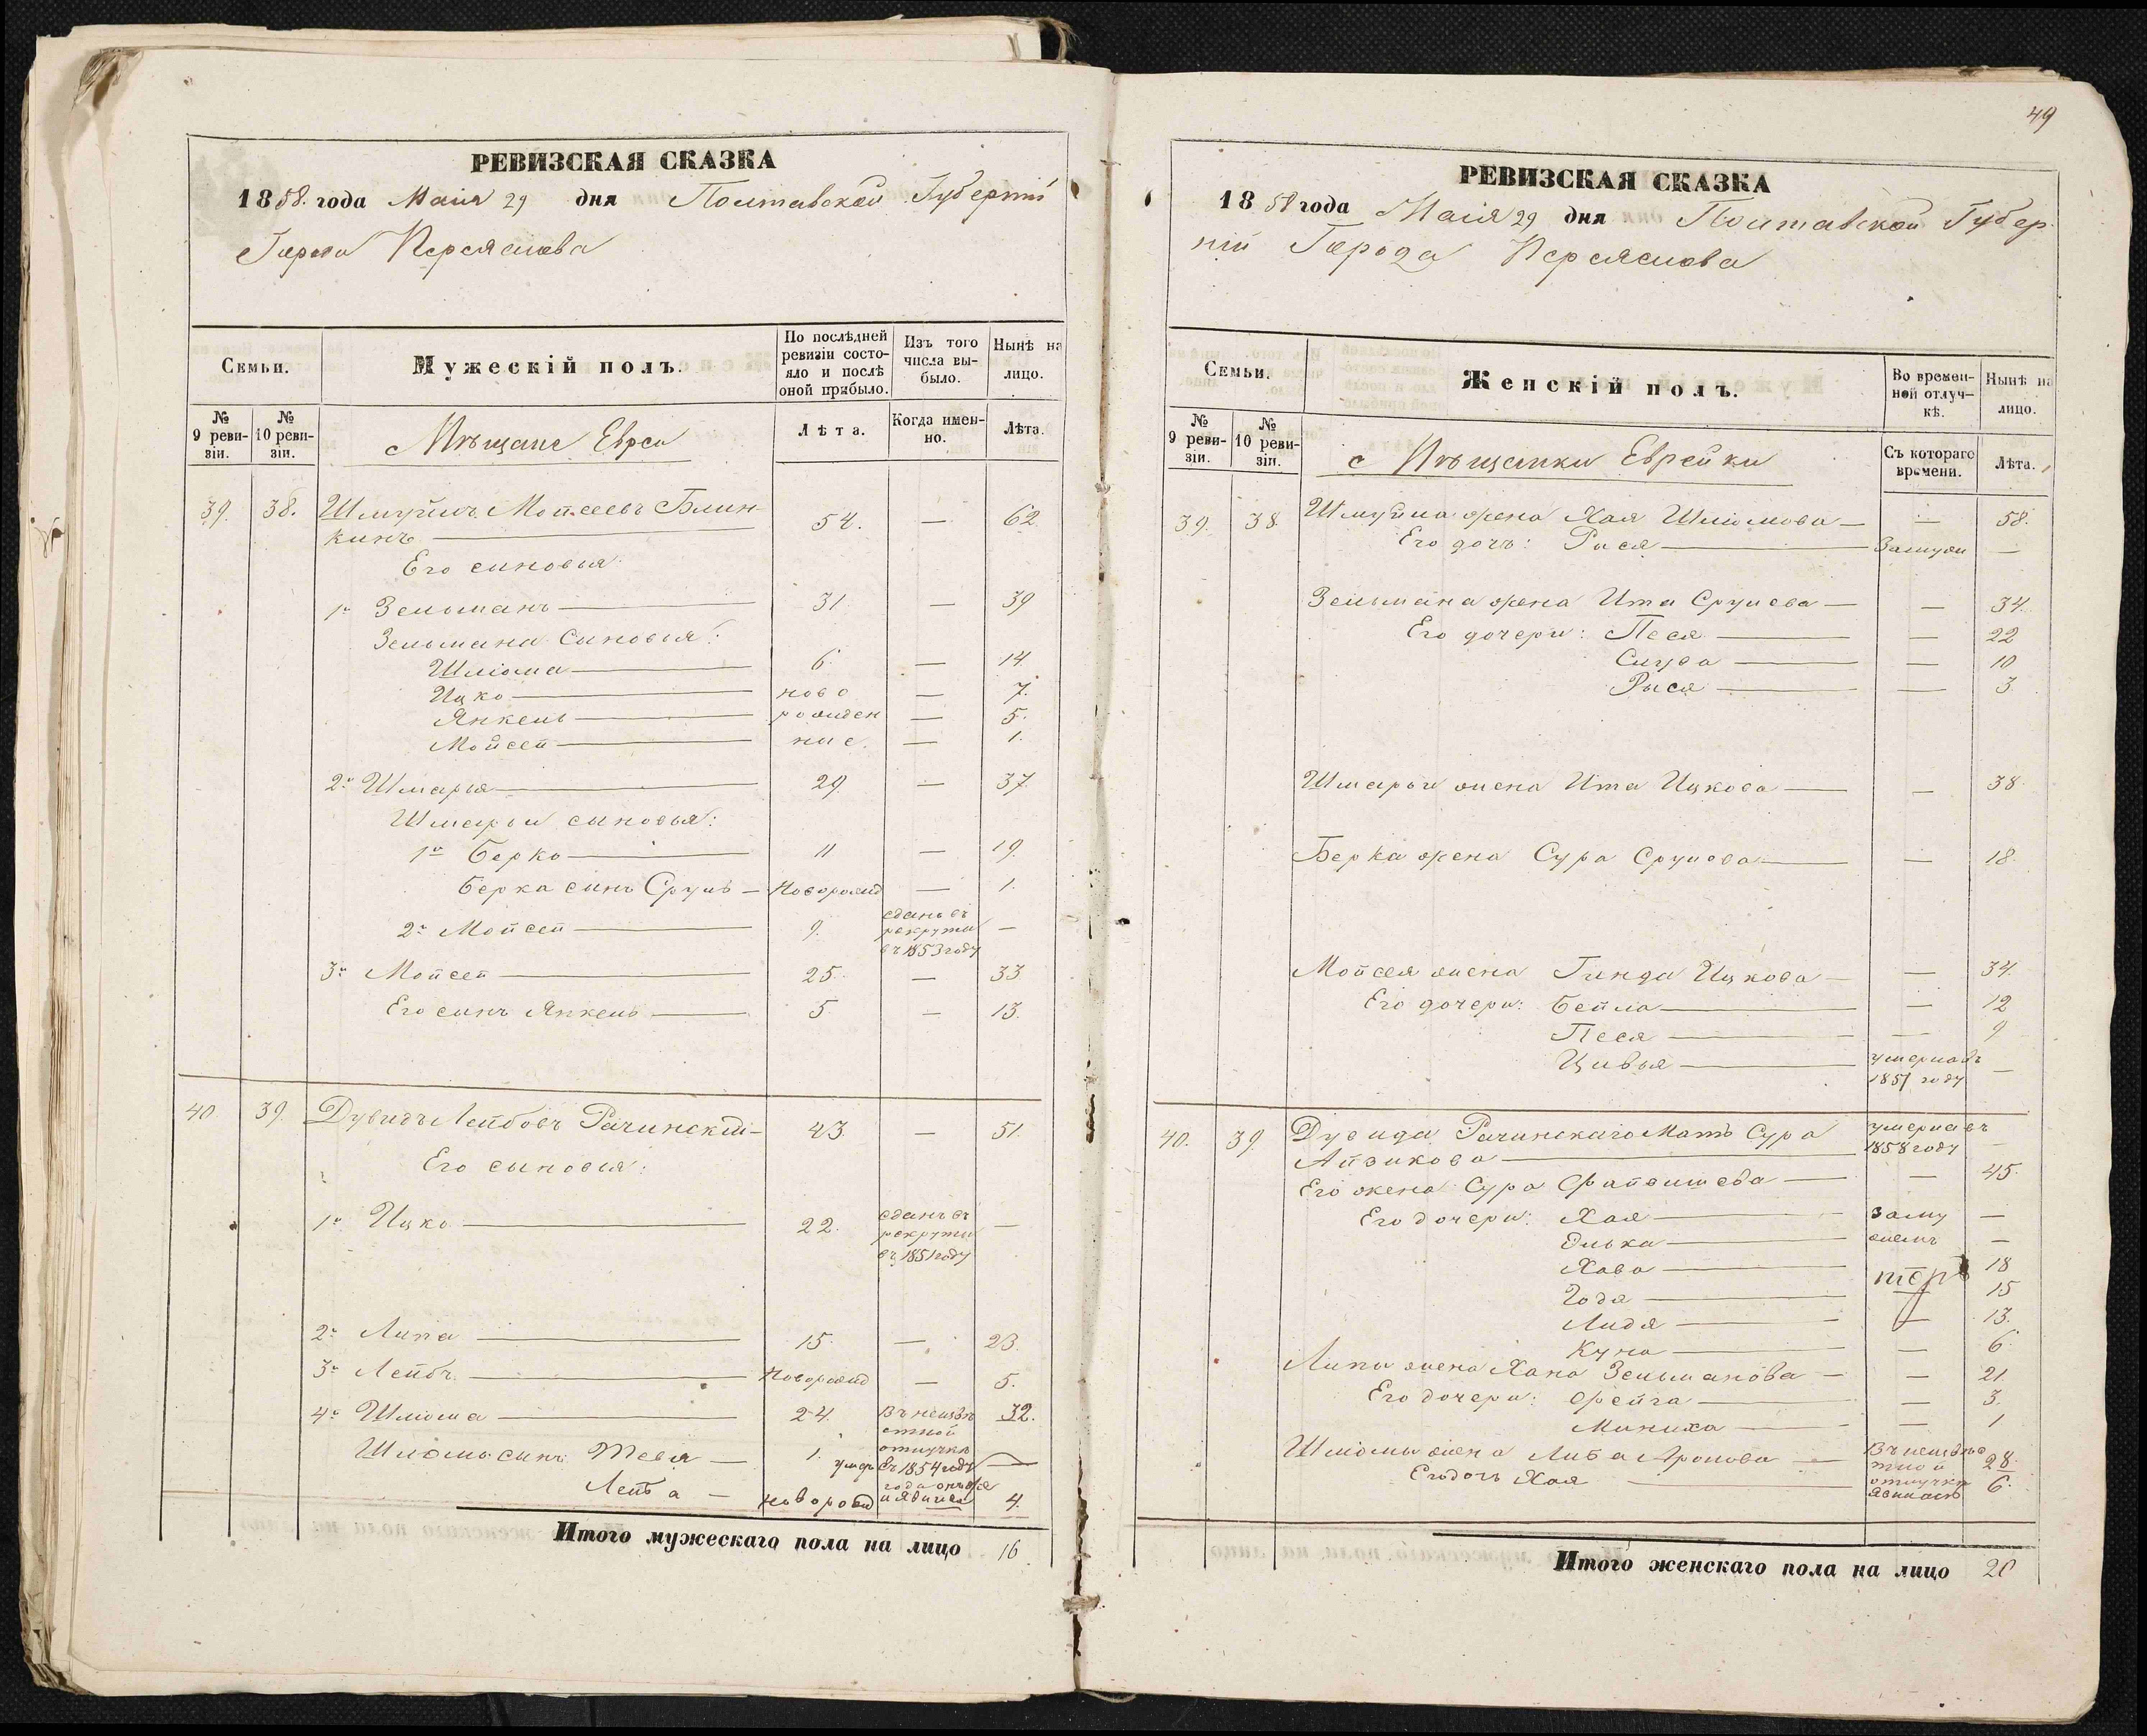 49
РЕВИЗСКАЯ СКАЗКА
1858. года Маiя 29 дня Полтавской Губернiи
Города Переяслова
Семьи.
Мужескiй полъ.
По послѣдней ревизiи состо-яло и послѣ оной прибыло.
Изъ того числа вы-было.
Нынѣ на лицо.
№ 9 реви-зiи.
№ 10 реви-зiи.
Мѣщане Евреи
Лѣта.
Когда имен-но.
Лѣта.
39. 38. Шмуйлъ Мойсеевъ Блин-
кинъ 54. — 62.
Его сыновья:
1й Зельманъ 31 — 39
Зельмана сыновья:
Шлiома 6. — 14.
Ицко ново — 7.
Янкель рожден — 5.
Мойсей ние. — 1.
2й Шмарья 29. — 37.
Шмарьи сыновья:
1й Берко 11 — 19.
Берка сынъ Сруль — Новорожд — 1.
2й Мойсей 9. сданъ въ рекруты въ 1853 году —
3й Мойсей 25. — 33
Его сынъ Янкель 5 — 13.
40 39. Дувидъ Лейбовъ Рачинскiй — 43. — 51.
Его сыновья:
1й Ицко 22. сданъ въ рекруты въ 1851 году —
2й Липа 15. — 23.
3й Лейбъ Новорожд — 5.
4й Шлiома 24. въ неизвѣстной отлучкѣ 32.
Шлiомы сынъ Тевья — 1. умеръ въ 1854 году —
Лейба — новорожд года онъ же и явился 4.
Итого мужескаго пола на лицо 16
РЕВИЗСКАЯ СКАЗКА
1858 года Маiя 29 дня Полтавской Губер-
нiи Города Переяслова
Семьи.
Женскiй полъ.
Во времен-ной отлуч-кѣ.
Нынѣ на лицо.
№ 9 реви-зiи.
№ 10 реви-зiи.
Мѣщанки Еврейки
Съ котораго времени.
Лѣта.
39. 38. Шмуйла жена Хая Шлiомова — — 58.
Его дочь: Рася Замужи —
Зельмана жена Ита Срулева — — 34.
Его дочери: Песя — 22
— 10
Рыся — 3.
Шмарьи жена Ита Ицкова — 38.
Берка жена Сура Срулева — 18.
Мойсея жена Гинда Ицкова — — 34.
Его дочери: Бейла — 12
Песя — 9
Цивья умерла въ 1851 году —
40. 39. Дувида Рачинскаго Мать Сура умерла въ
Айзикова 1858 году —
Его жена Сура Файвишева — 45.
Его дочери: Хая заму —
Элька жемъ —
Хава 18
15
13.
Куна — 6.
Липы жена Хана Зельманова — — 21.
Его дочери: Фейга — 3.
Миниха — 1
Шлiомы жена Либа Аронова — въ неизвѣстной 28.
Его дочь Хая отлучкѣ явилась 6.
Итого женскаго пола на лицо 20